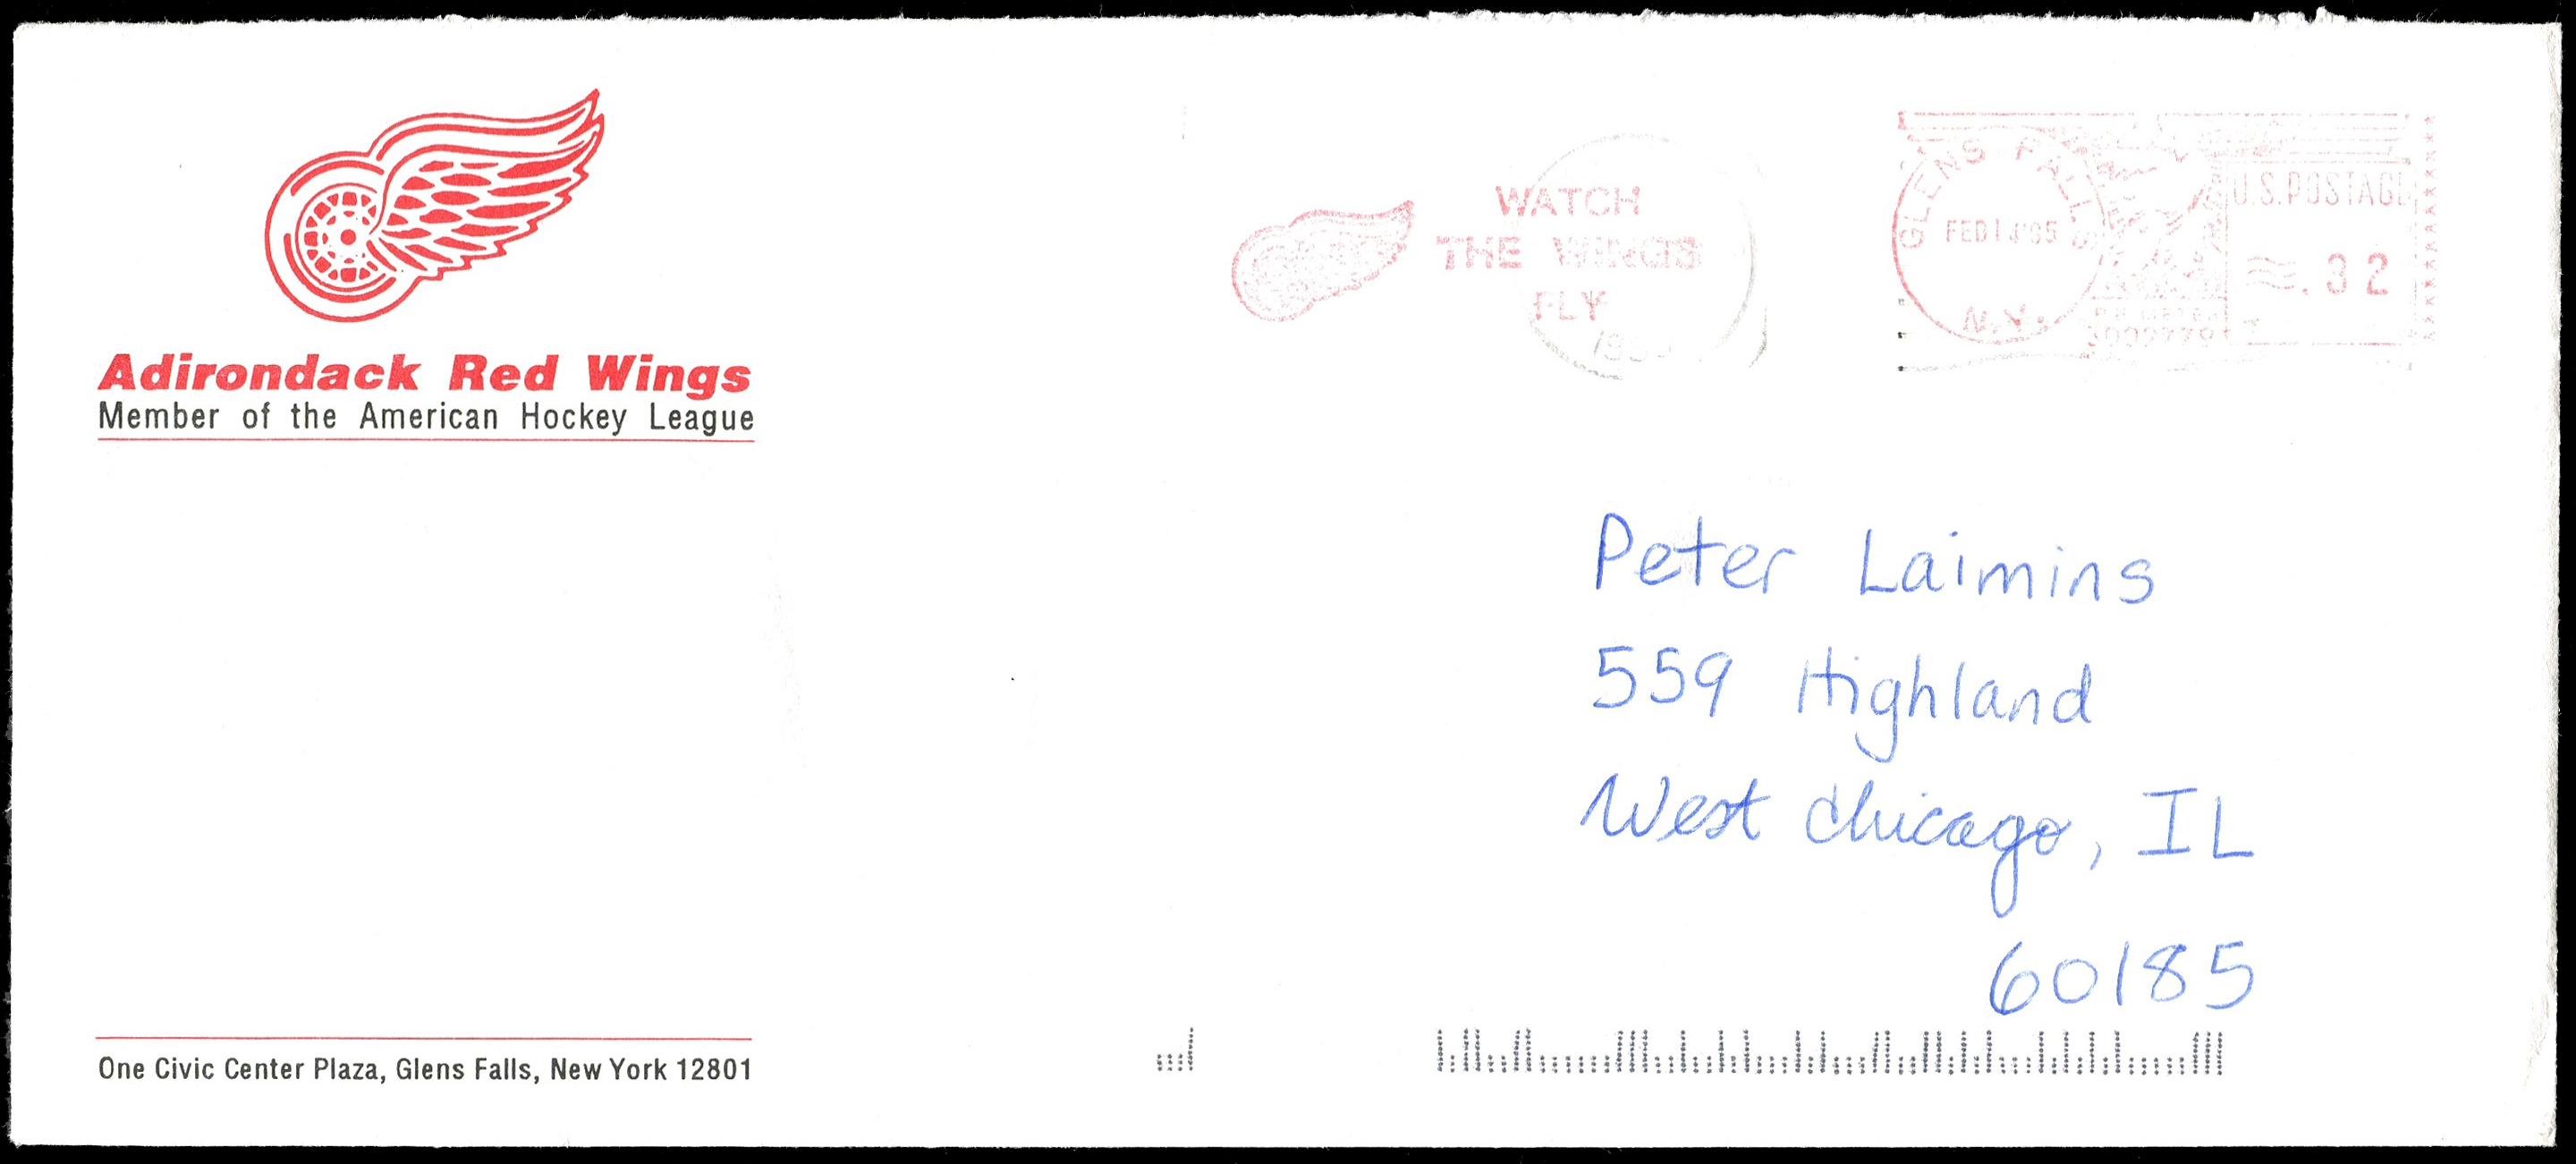 Adirondack Red Wings
Member of the American Hockey League
WATCH
THE WINGS
FLY
GLENS FALLS
FEB 14 '95
N.Y.
U.S. POSTAGE
.32
Peter Laimins
559 Highland
West Chicago, IL
60185
One Civic Center Plaza, Glens Falls, New York 12801